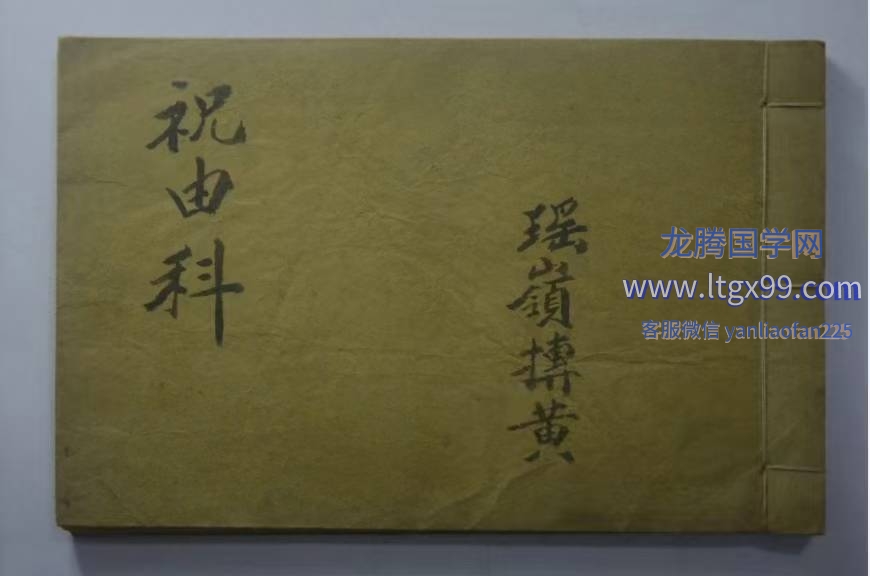 祝由科
瑶嶺摶黄
龙腾国学网
www.ltgx99.com
客服微信 yanliaofan225